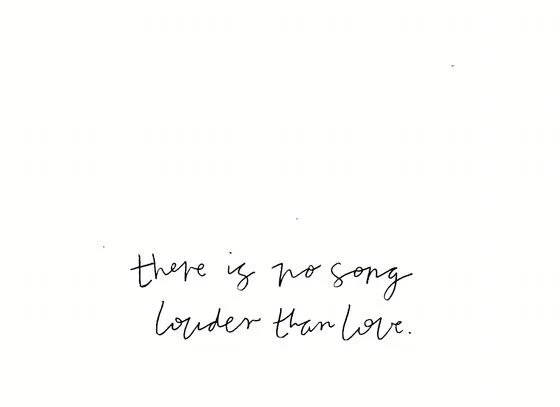 there is no song
louder than love.